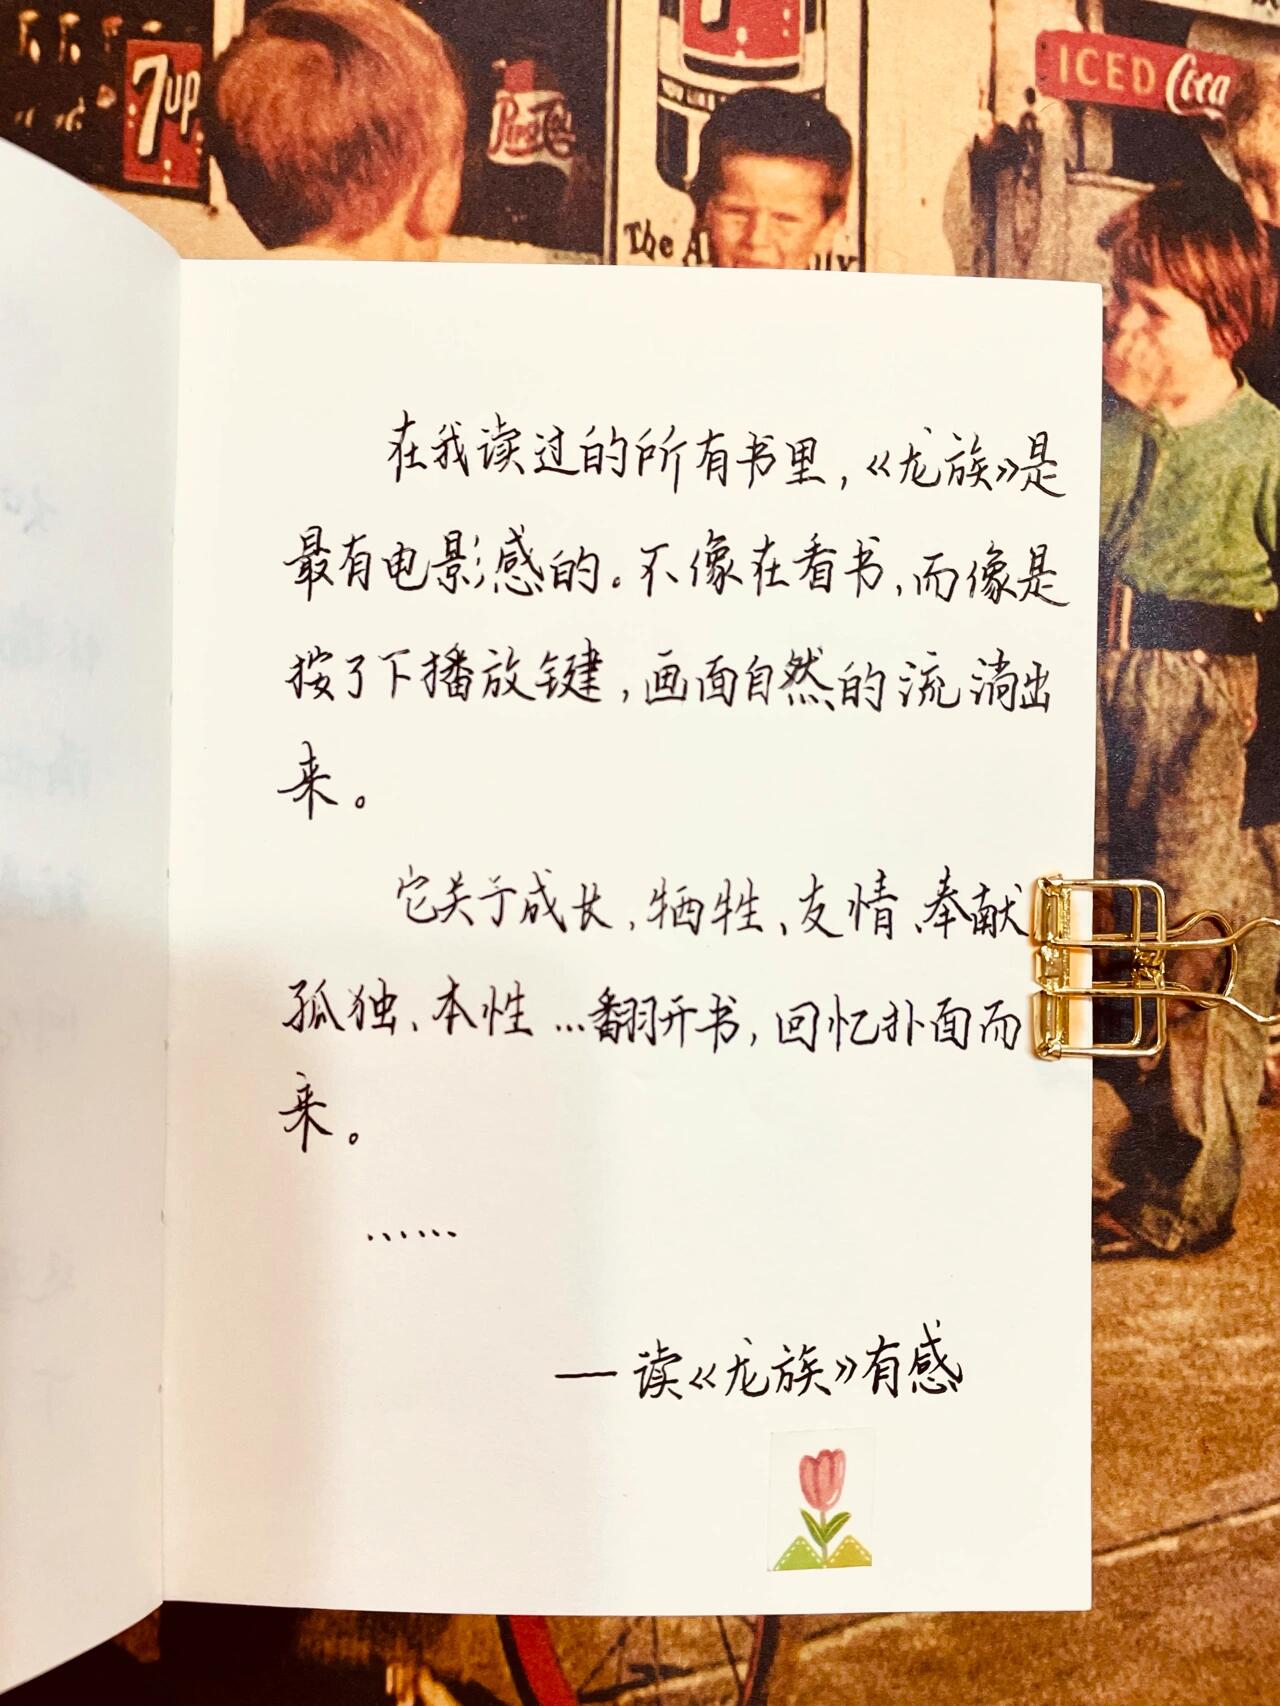 7up
ICED Coca
The A
在我读过的所有书里,《龙族》是
最有电影感的。不像在看书,而像是
按了下播放键,画面自然的流淌出
来。
它关于成长,牺牲、友情、奉献
孤独、本性…翻开书,回忆扑面而
来。
……
—读《龙族》有感